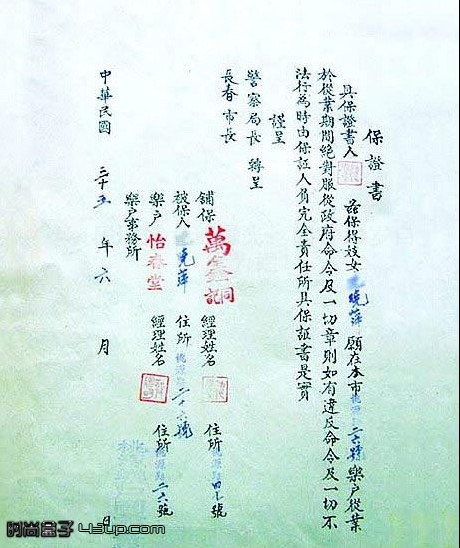 保證書
具保證書人 茲保得妓女 曉萍 願在本市桃源路二六號樂户從業
於從業期間絕對服從政府命令及一切章則如有違反命令及一切不
法行為時由保証人負完全責任所具保証書是實
謹呈
警察局長 轉呈
長春市長
舖保 萬鑫同記 經理姓名 住所 桃源路 號
被保人 曉萍 住所 桃源路二十六號
樂户 怡春堂 經理姓名 住所 桃源路二六號
樂户事務所
中華民國 三十五年六月 日
时尚盒子 43up.com